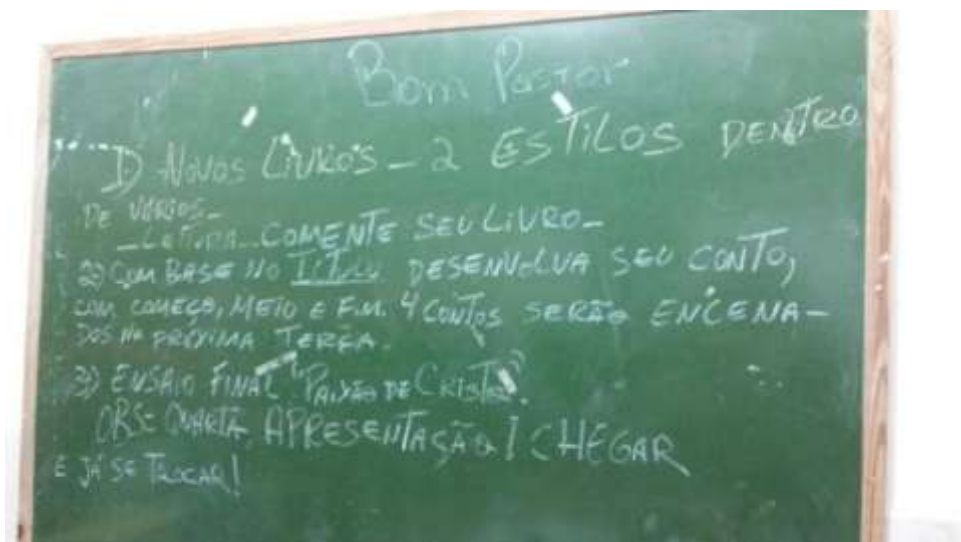 Bom Pastor
1) NOVOS LIVROS - 2 ESTILOS DENTRO
DE VÁRIOS -
- LEITURA - COMENTE SEU LIVRO -
2) COM BASE NO TÍTULO DESENVOLVA SEU CONTO,
COM COMEÇO, MEIO E FIM. 4 CONTOS SERÃO ENCENA-
DOS NA PRÓXIMA TERÇA.
3) ENSAIO FINAL "PAIXÃO DE CRISTO".
OBS: QUARTA, APRESENTAÇÃO! CHEGAR
E JÁ SE TROCAR!